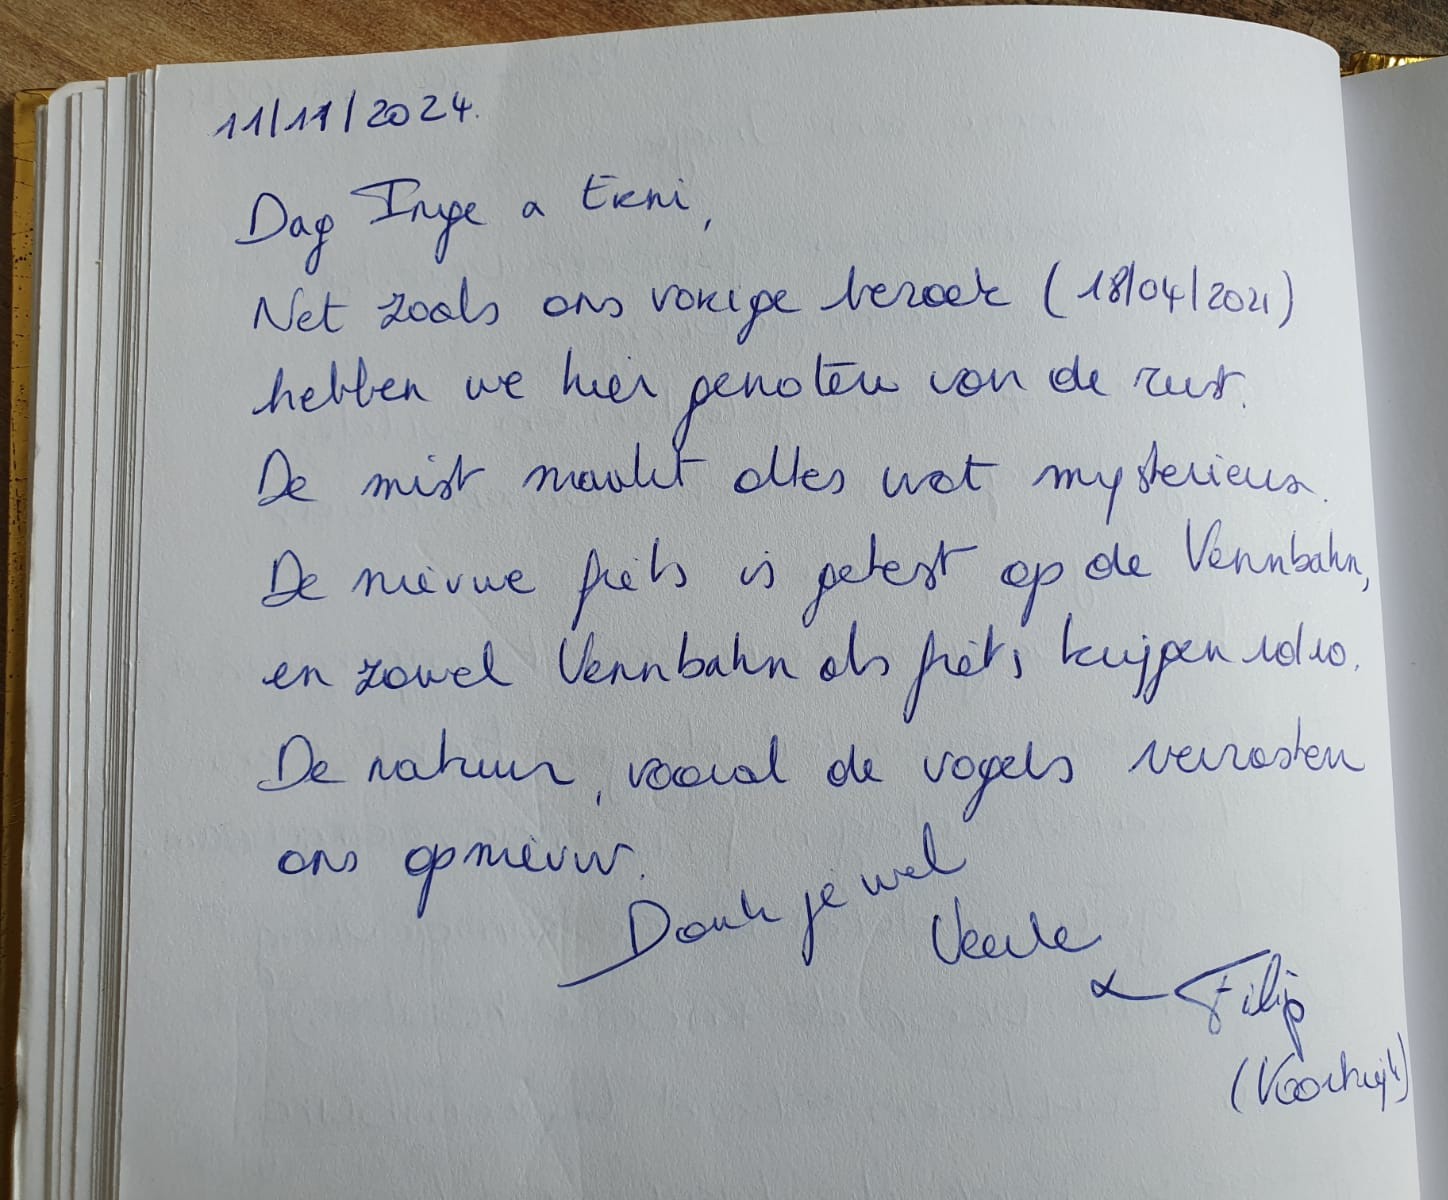 11/11/2024.
Dag Inge & Erni,
Net zoals ons vorige bezoek (18/04/2021)
hebben we hier genoten van de rust.
De mist maakt alles wat mysterieus.
De nieuwe fiets is getest op de Vennbahn,
en zowel Vennbahn als fiets krijgen 10/10.
De natuur, vooral de vogels verrasten
ons opnieuw.
Dank je wel
Veerle
& Filip